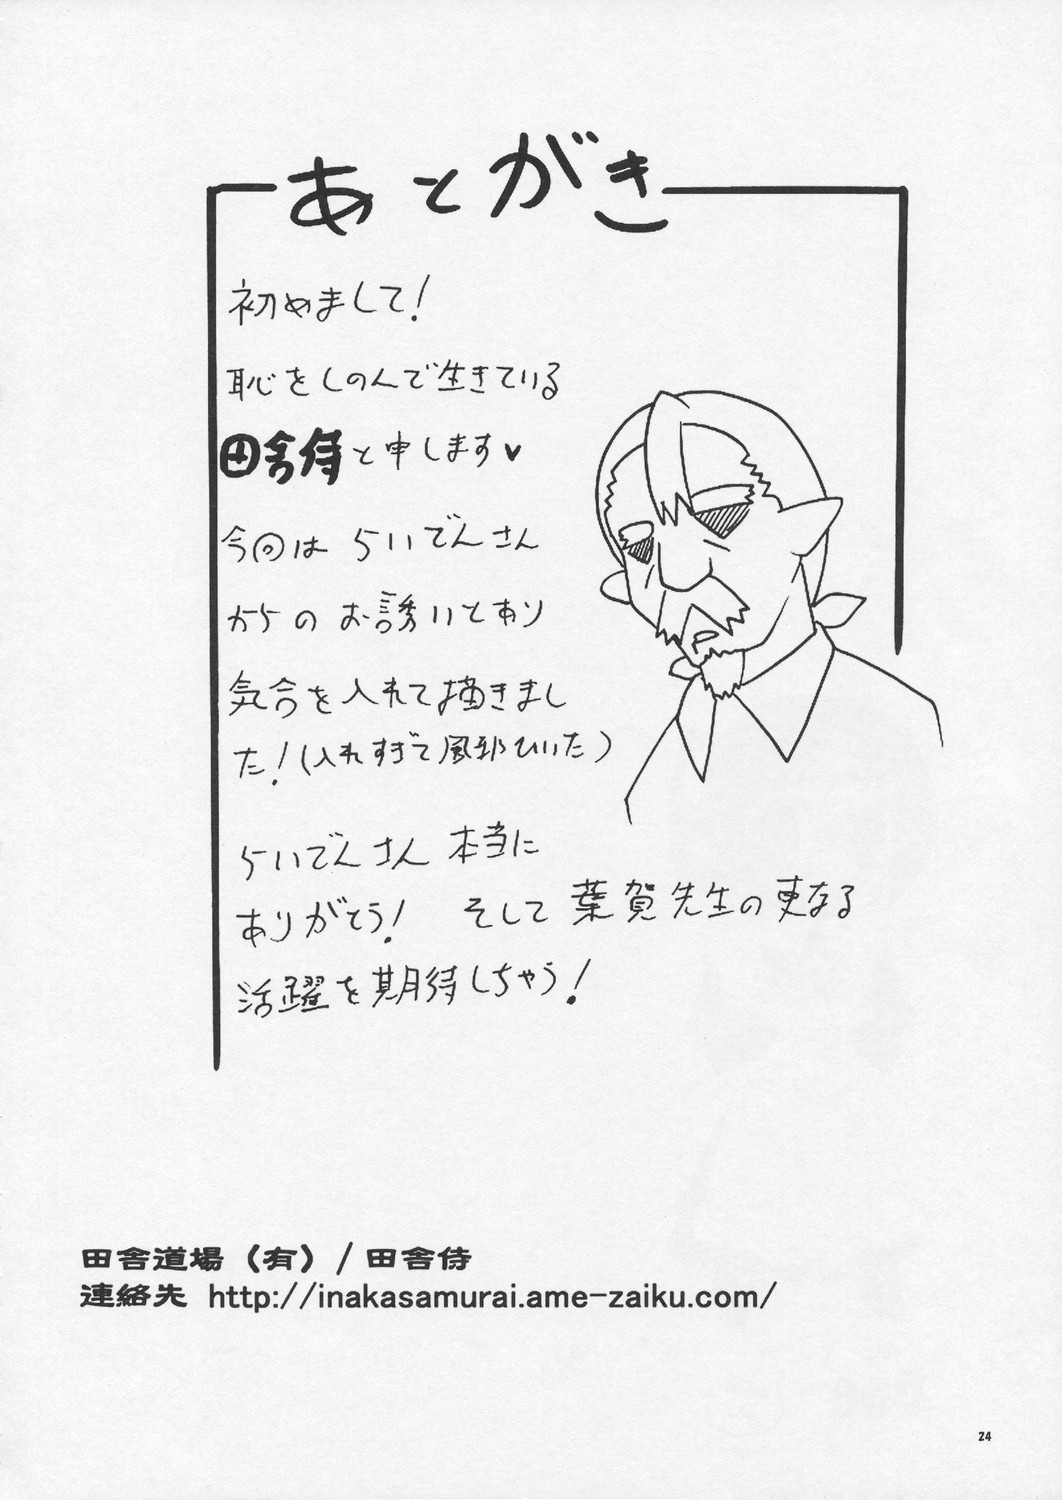 あとがき
初めまして!
恥をしのんで生きている
田舎侍と申します♥
今回は らいでんさん
からの お誘いとあり
気合を入れて描きまし
た!(入れすぎて風邪ひいた)
らいでんさん 本当に
ありがとう! そして 葉賀先生の更なる
活躍を期待しちゃう!
田舎道場(有)/田舎侍
連絡先 http://inakasamurai.ame-zaiku.com/
24